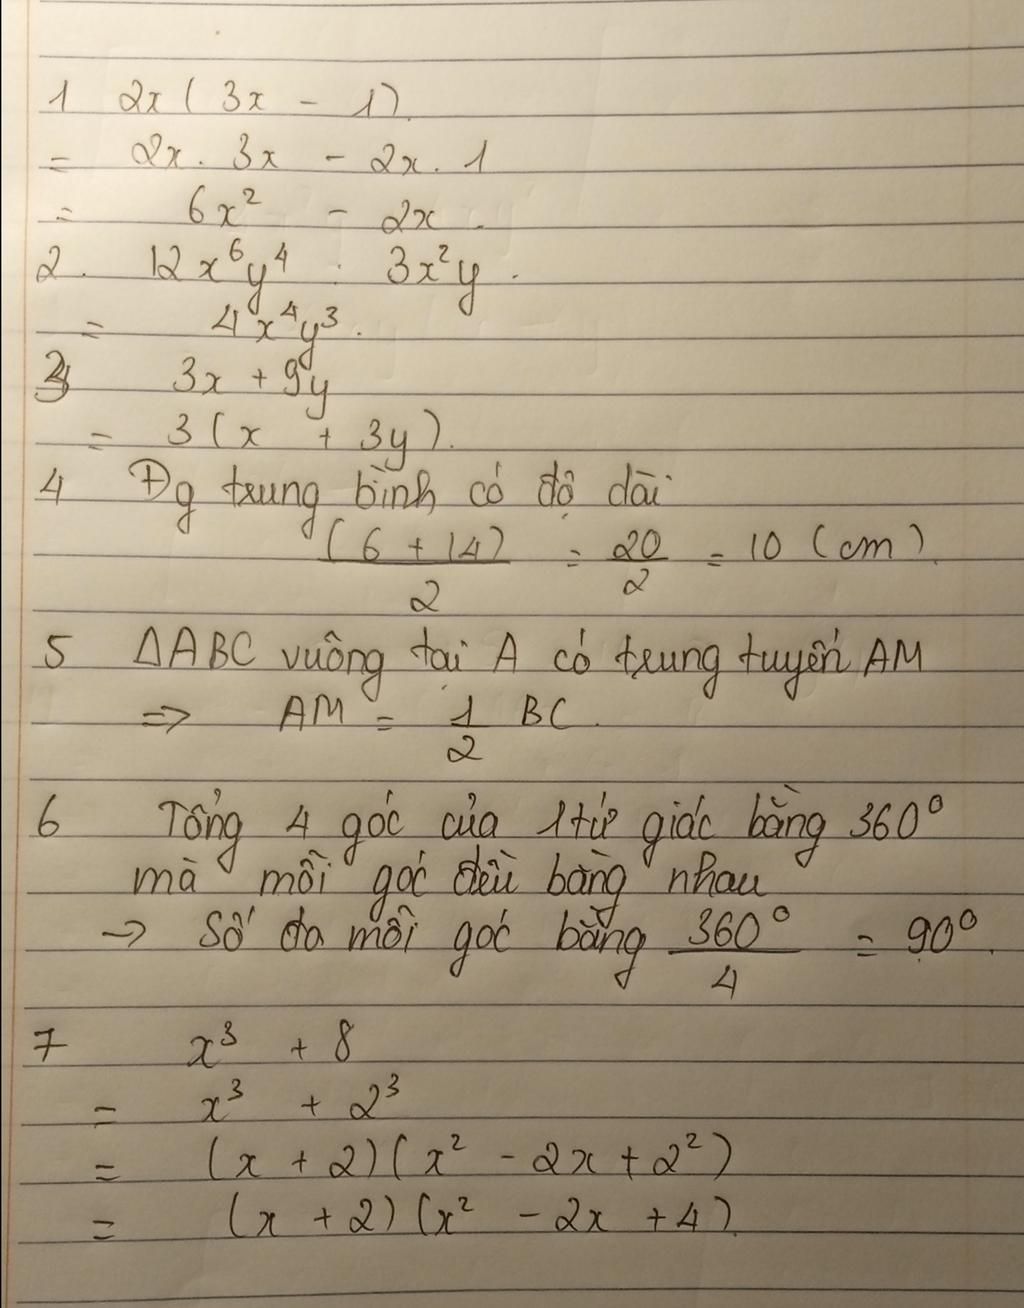 1 2x ( 3x - 1)
= 2x . 3x - 2x . 1
= 6x² - 2x .
2 . 12x⁶y⁴ : 3x²y .
= 4x⁴y³ .
3 3x + 9y
= 3 ( x + 3y ) .
4 Đg trung bình có độ dài
(6 + 14) / 2 = 20/2 = 10 (cm)
5 ΔABC vuông tại A có trung tuyến AM
=> AM = 1/2 BC .
6 Tổng 4 góc của 1 tứ giác bằng 360°
mà mỗi góc đều bằng nhau
-> Số đo mỗi góc bằng 360°/4 = 90° .
7 x³ + 8
= x³ + 2³
= (x + 2)(x² - 2x + 2²)
= (x + 2)(x² - 2x + 4)